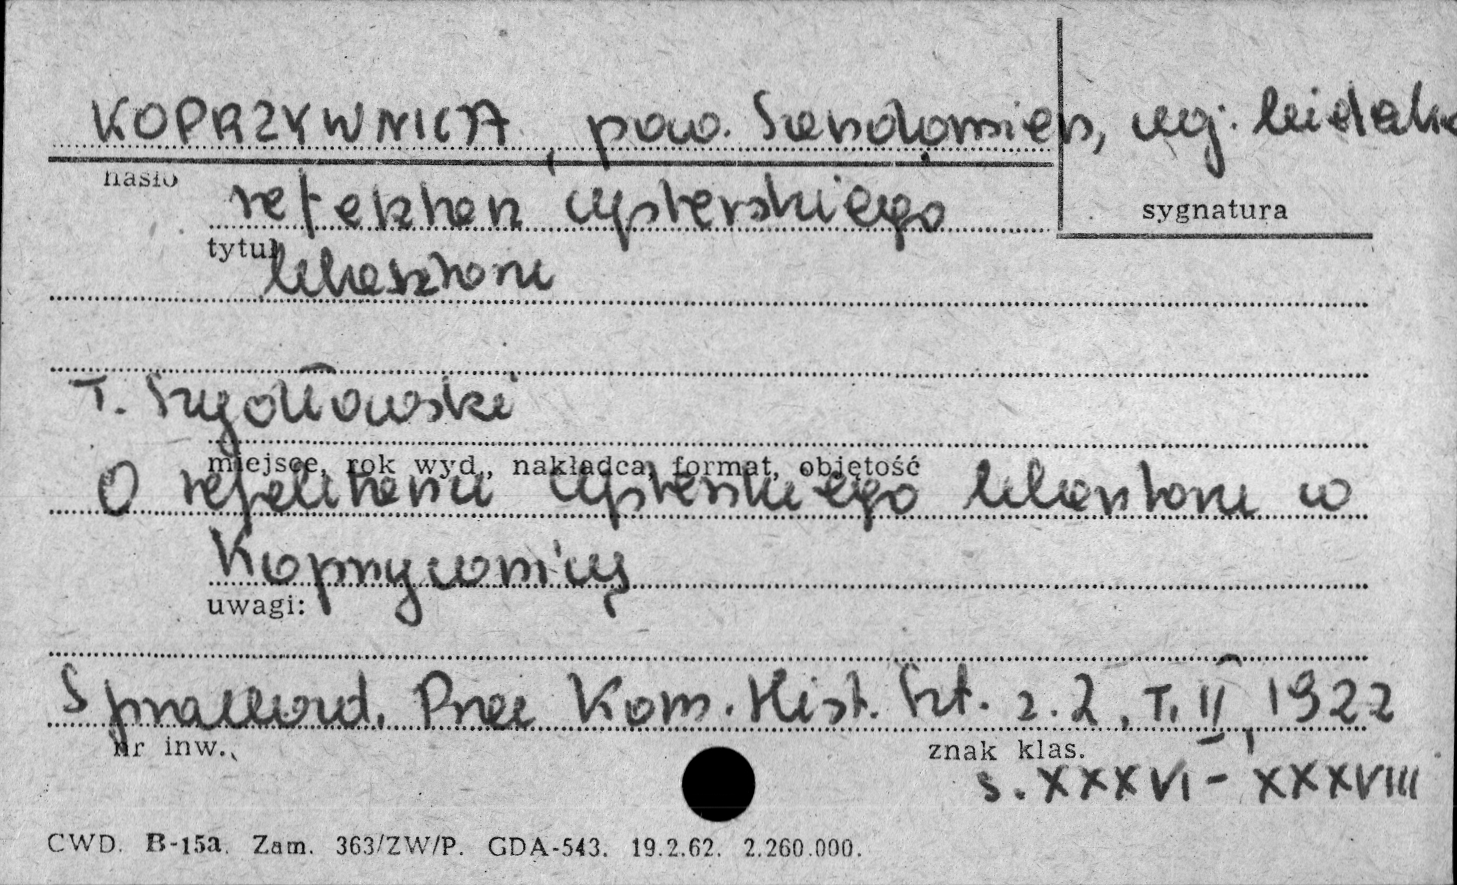 KOPRZYWNICA, pow. Sandomierz, woj. kieleckie
hasło
sygnatura
refektarz cysterskiego
tytuł
klasztoru
T. Szydłowski
miejsce, rok wyd., nakładca, format, objętość
O refektarzu cysterskiego klasztoru w
Koprzywnicy
uwagi:
Sprawozd. Prac Kom. Hist. Szt. z. 2, T. II, 1922
nr inw.
znak klas.
s. XXXVI - XXXVIII
CWD. B-15a. Zam. 363/ZW/P. GDA-543. 19.2.62. 2.260.000.